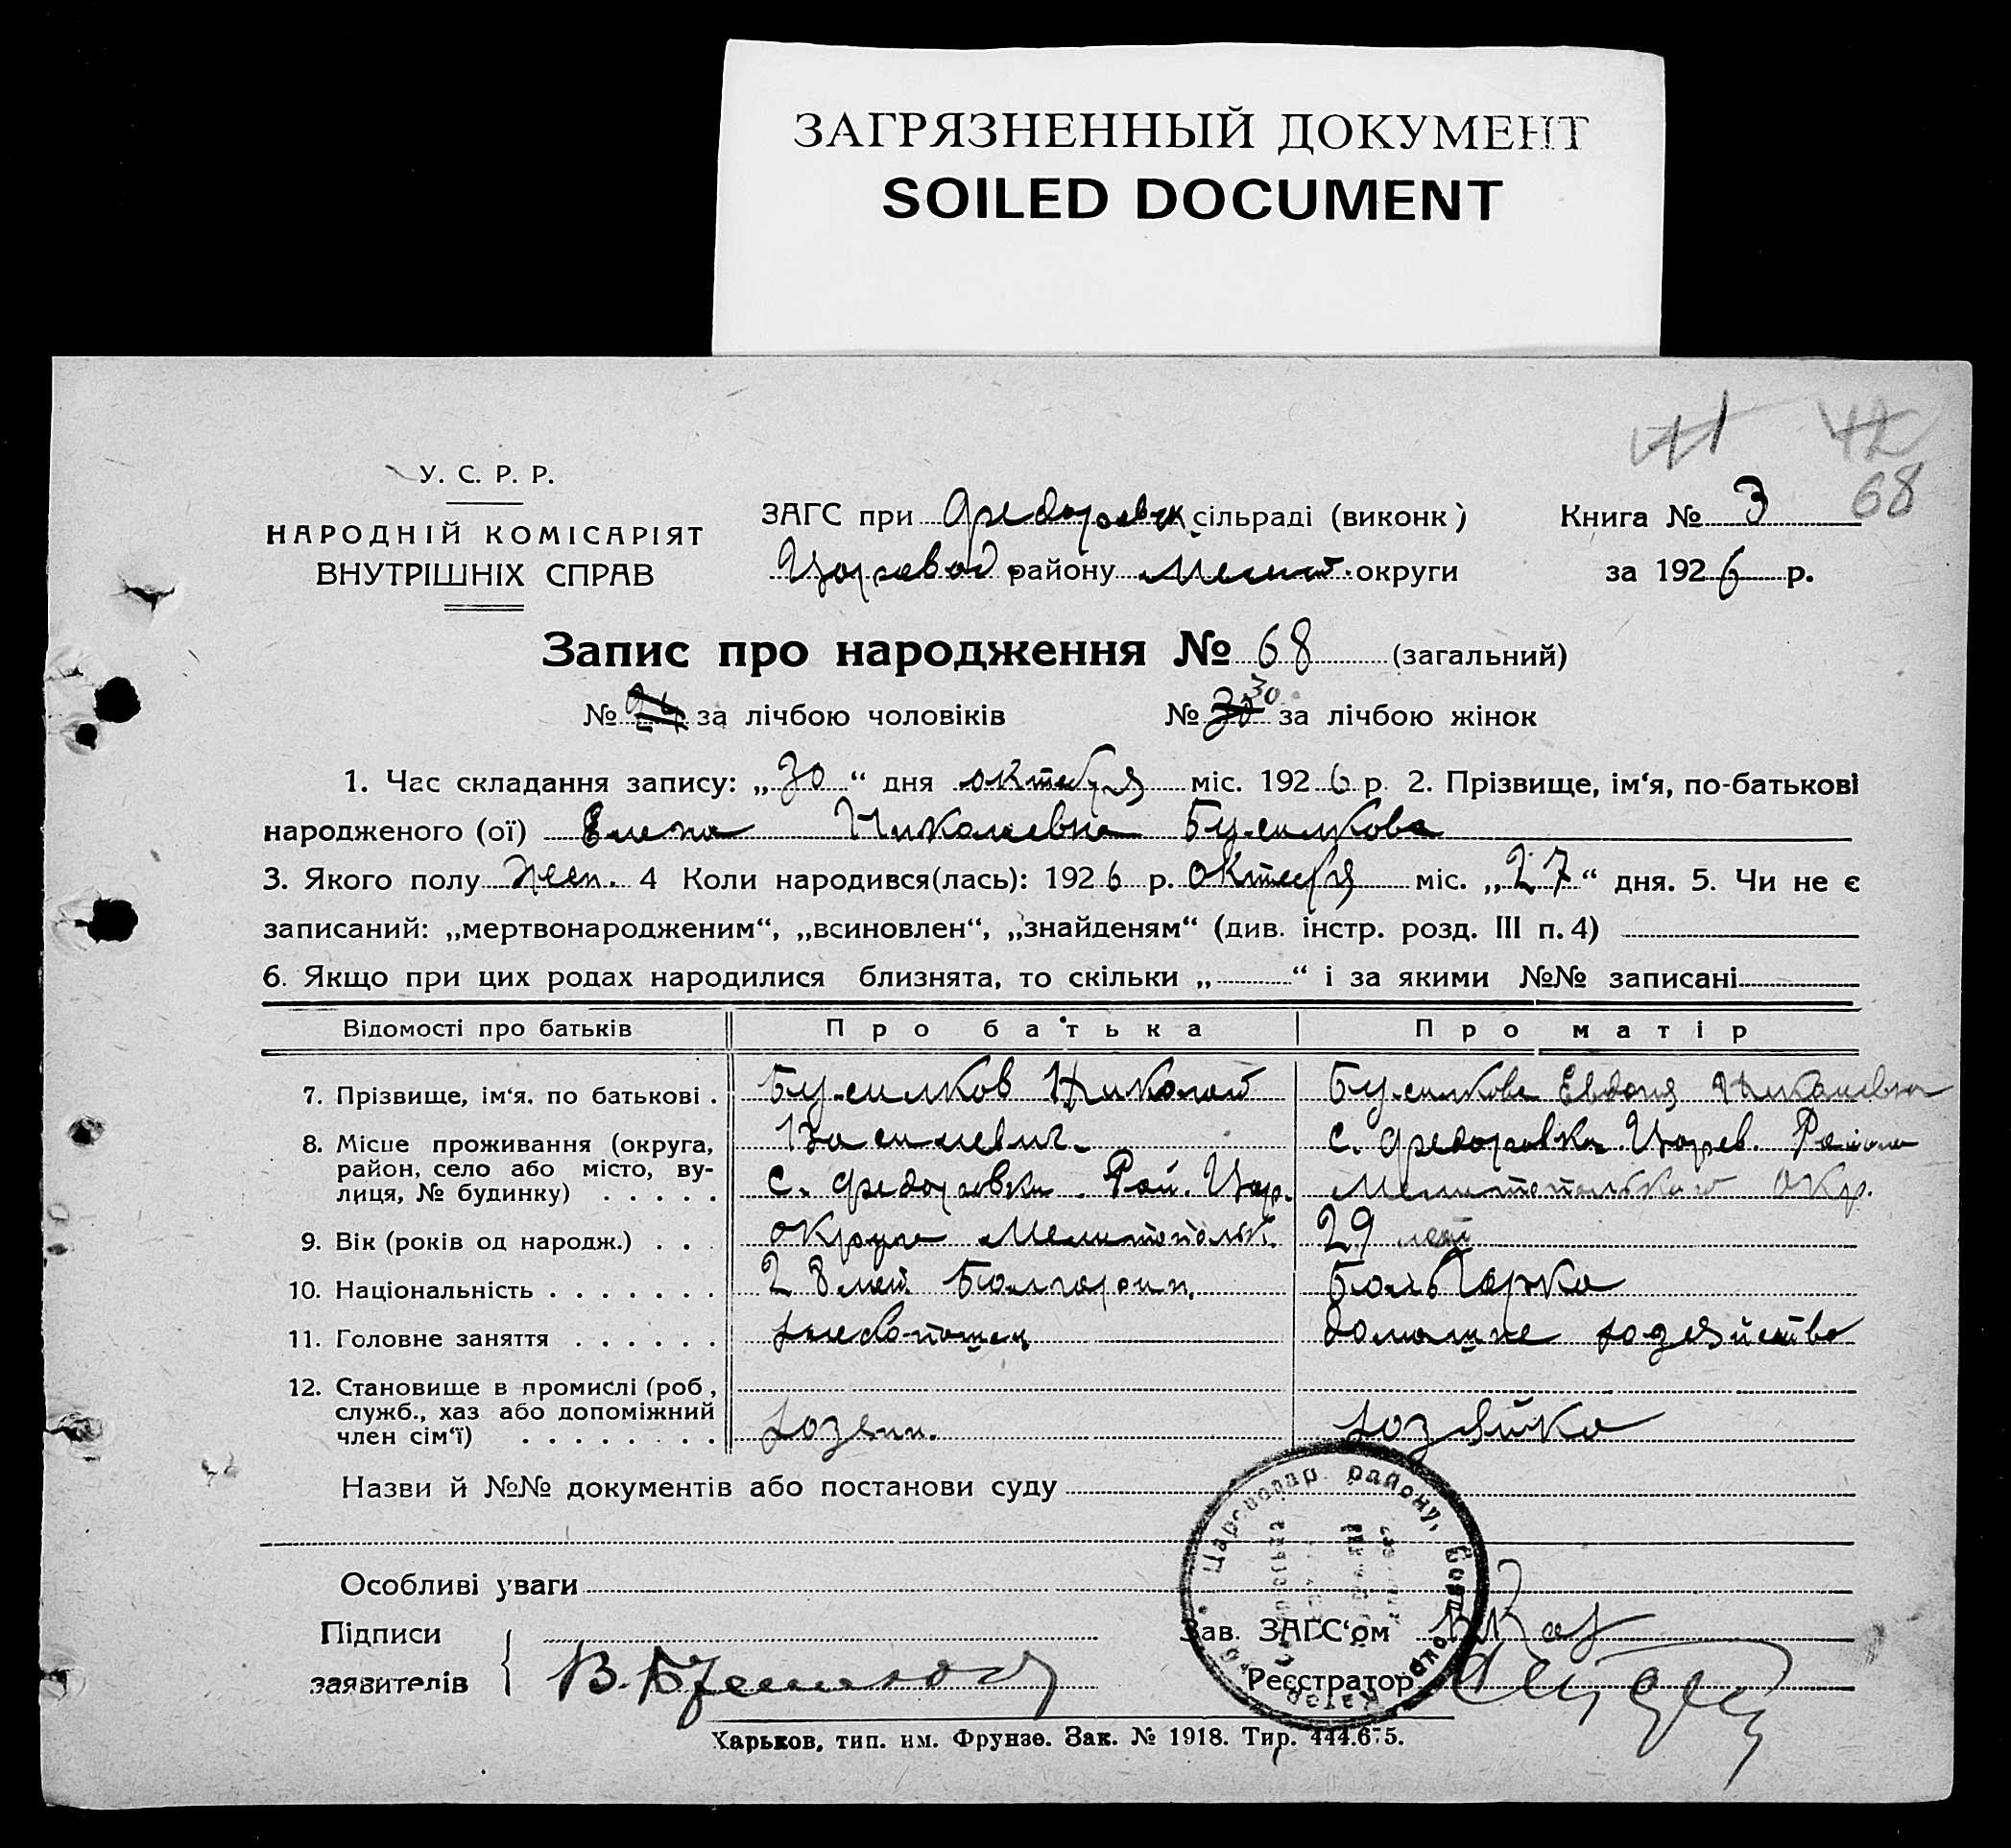 ЗАГРЯЗНЕННЫЙ ДОКУМЕНТ
SOILED DOCUMENT
41 42
68
У. С. Р. Р.
НАРОДНІЙ КОМІСАРІЯТ
ВНУТРІШНІХ СПРАВ
ЗАГС при Федоровск сільраді (виконк)
Царевод. району Мелит. округи
Книга № 3
за 1926 р.
Запис про народження № 68 (загальний)
№ за лічбою чоловіків № 30 за лічбою жінок
1. Час складання запису: „30“ дня октебря міс. 1926 р. 2. Прізвище, ім‘я, по-батькові
народженого (ої) Елена Николаевна
3. Якого полу жен. 4 Коли народився(лась): 1926 р. октебря міс. „27“ дня. 5. Чи не є
записаний: „мертвонародженим“, „всиновлен“, „знайденям“ (див. інстр. розд. III п. 4)
6. Якщо при цих родах народилися близнята, то скільки „ “ і за якими №№ записані
Відомості про батьків Про батька Про матір
7. Прізвище, ім‘я, по батькові . Николай Евдокия
8. Місце проживання (округа, Василевич. с. Федоровка Царев. Района
район, село або місто, ву-
лиця, № будинку) . . . . . с. Федоровка Рай. Цар. Мелитопольского Окр.
9. Вік (років од народж.) . . . округа Мелитопольск. 29 лет
10. Національність . . . . . . . 28 лет Болгарин. Больгарка
11. Головне заняття . . . . . . хлебопашец домашне ходзяйство
12. Становище в промислі (роб,
служб., хаз або допоміжний
член сім‘ї) . . . . . . . . хозеин. хозяйка
Назви й №№ документів або постанови суду
Особливі уваги
Підписи
заявителів
Зав. ЗАГС‘ом
Реєстратор
Цареводар. району,
Харьков, тип. им. Фрунзе. Зак. № 1918. Тир. 444.675.